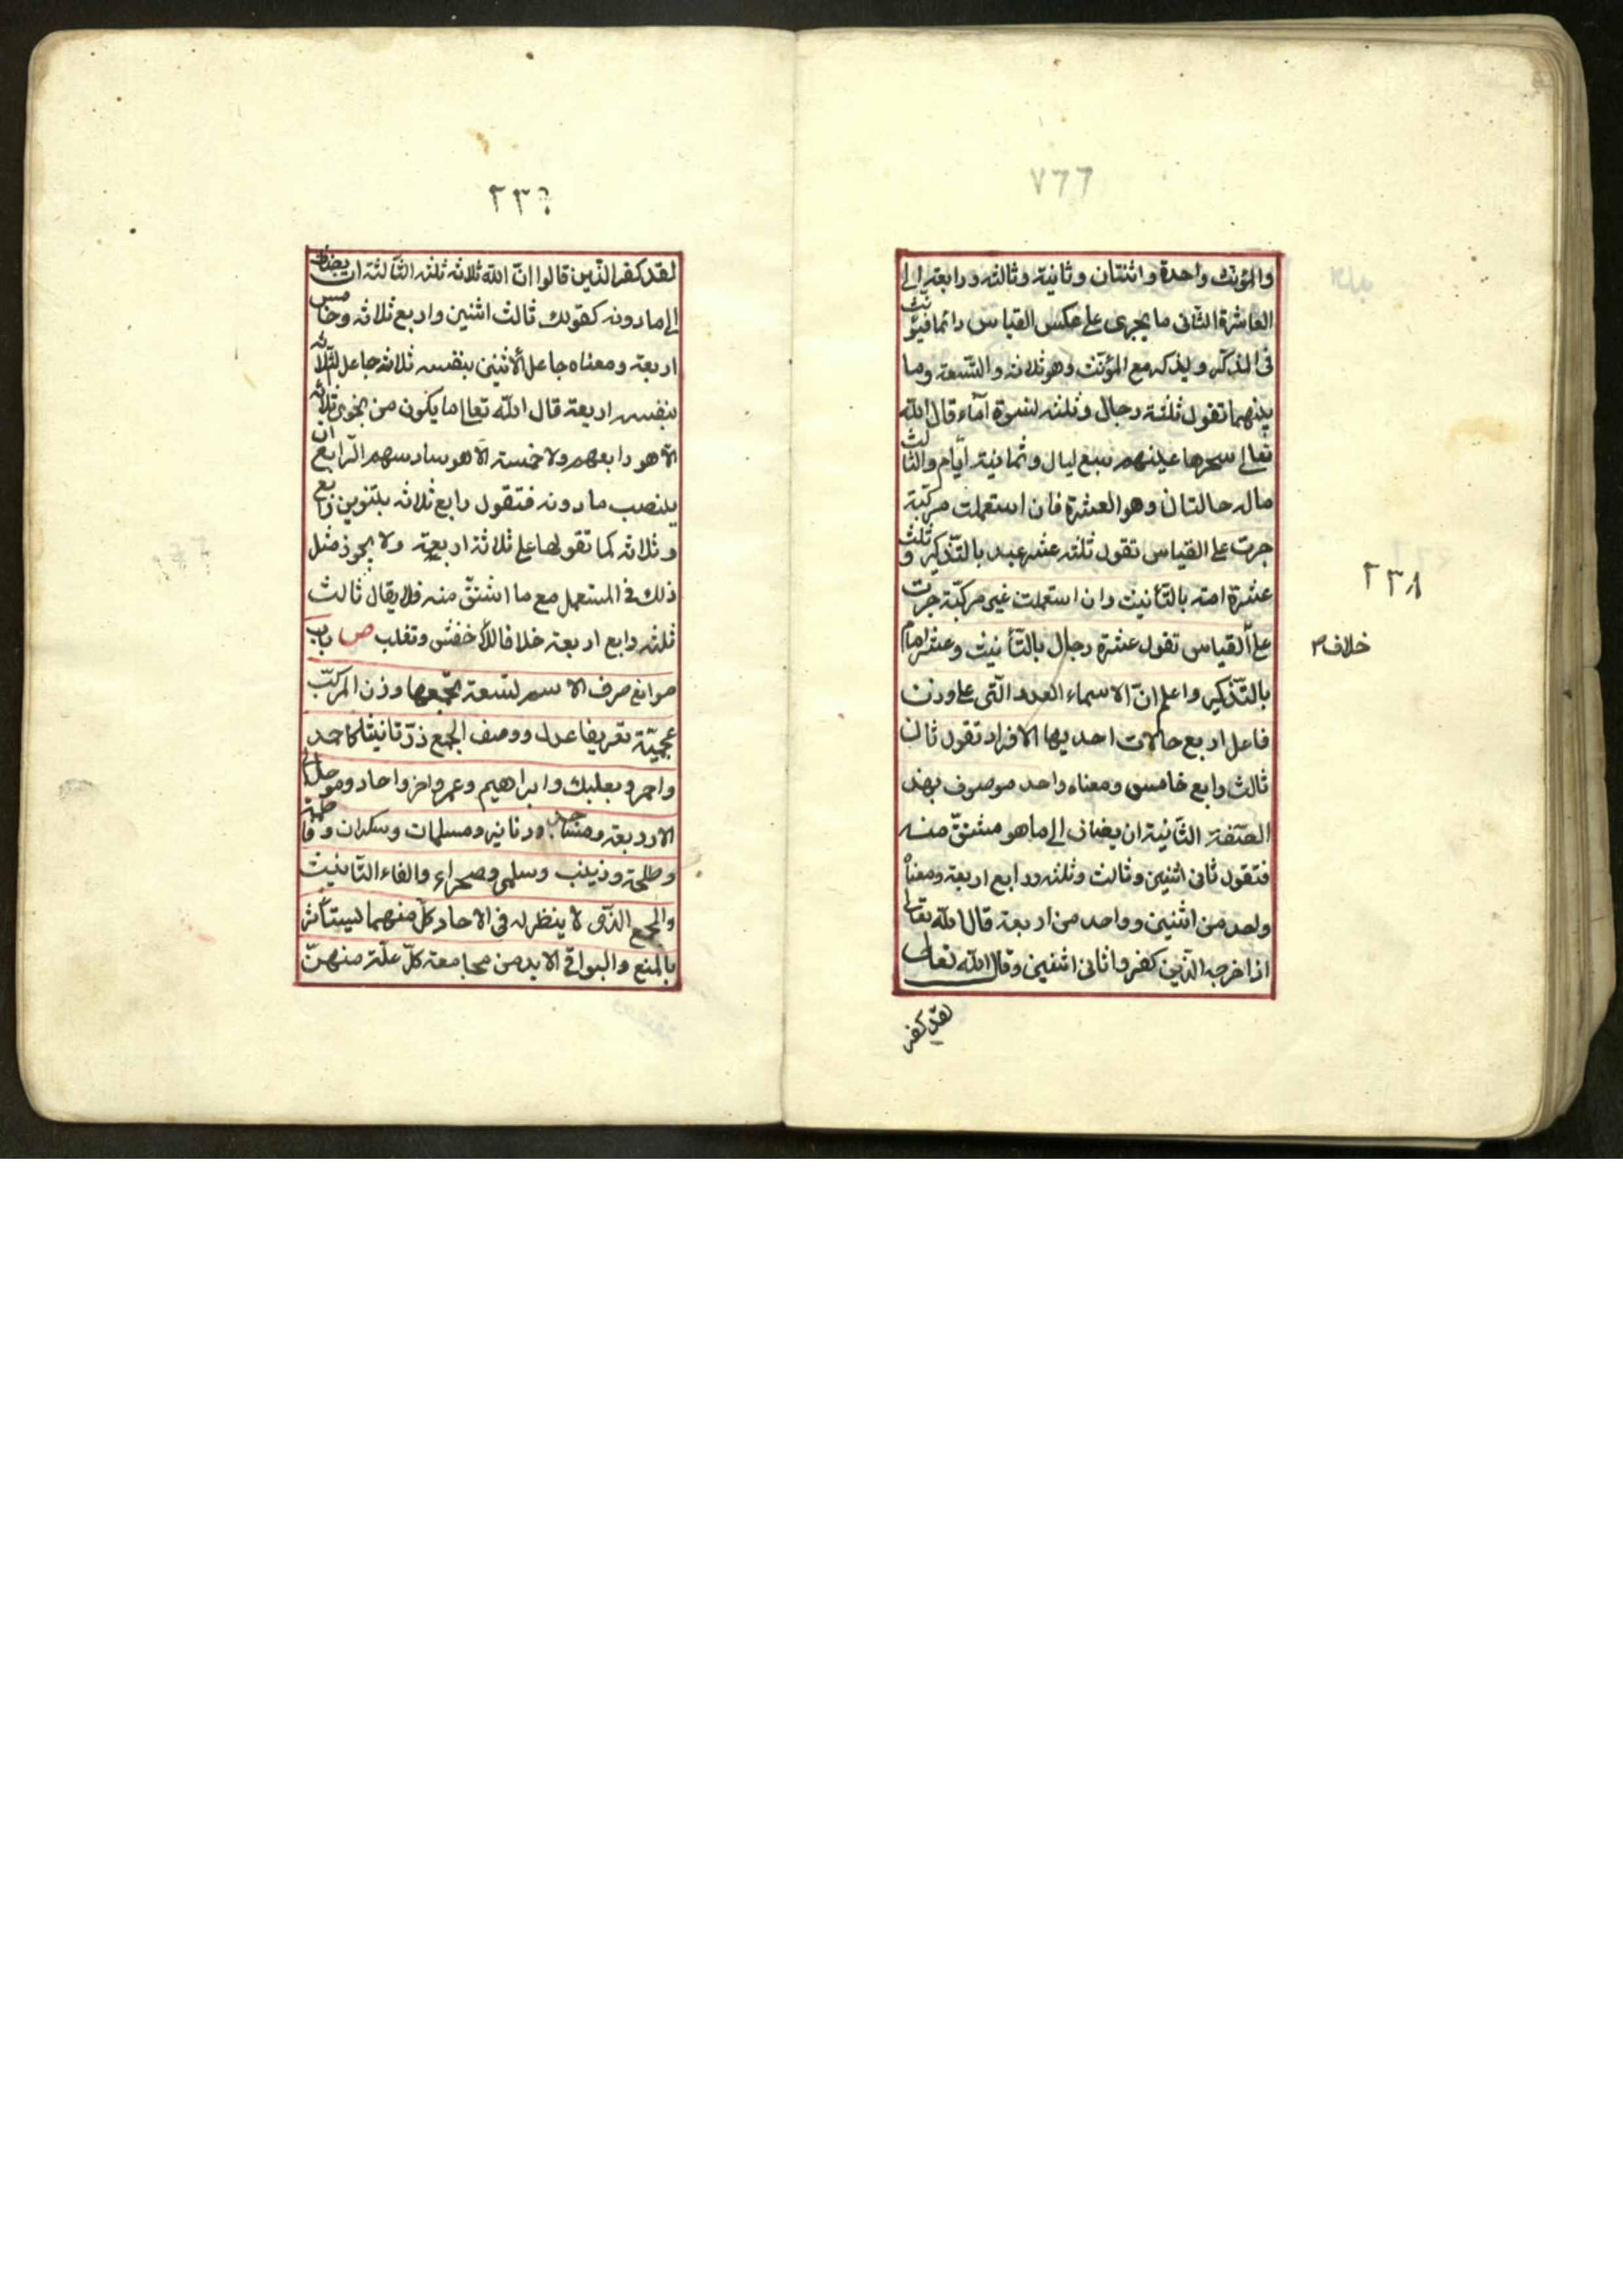 ٧٦٦
والمؤنث واحدة واثنتان وثانية وثالثه ورابعة الى
العاشرة الثانى ما يجرى على عكس القياس دائما فيؤنث
فى المذكر ويذكر مع المؤنث وهو ثلاثه والتسعة وما
بينهما تقول ثلثة رجال وثلثه لنسوة آماء قال الله
تعالى سخرها عليهم سبع ليال وثمانية ايّام والثالث
ماله حالتان وهو العشرة فان استعملت مركبة
جرت على القياس تقول ثلثه عشر عبد بالتذكير وثلث
عشرة امة بالتأنيث وان استعملت غير مركبّة جرت
على القياس تقول عشرة رجال بالتأنيث وعشر اماء
بالتّذكير واعلم انّ الاسماء العدد الّتى على وزن
فاعل اربع حالات احديها الافراد تقول ثان
ثالث رابع خامس ومعناه واحد موصوف بهذه
الصّفة الثّانية ان يضاف الى ما هو مشتقّ منه
فتقول ثانى اثنين وثالث وثلثه ورابع اربعة ومعناه
واحد من اثنين وواحد من اربعة قال الله تعالى
اذا خرجه الذّين كفروا ثانى اثنين وقال الله تعالى
لقد كفر
٢٣٨
خلاف
٢٣
لقد كفر الذّين قالوا انّ الله ثلاثه ثلثه الثّالثة ان يضاف
الى ما دونه كقولك ثالث اثنين واربع ثلاثه وخامس
اربعة ومعناه جاعل الاثنين بنفسه ثلاثه جاعل الثّلاثه
بنفسه اربعة قال الله تعالى ما يكون من نجوى ثلاثه
الّا هو رابعهم ولا خمسة الّا هو سادسهم الرّابع ان
ينصب ما دونه فتقول رابع ثلاثه بتنوين رابع
وثلاثه كما تقولها على ثلاثة اربعة ولا يجوز مثل
ذلك فى المستعمل مع ما اشتقّ منه فلا يقال ثالث
ثلثه رابع اربعة خلافا للأخفش وتغلب ص باب
موانع صرف الاسم لتسعة يجمعها وزن المركّب
عجميّة تعريفا عدل ووصف الجمع زد تانيثا كاحمد
واحمر وبعلبك وابراهيم وعمرو اخر واحاد وموحد الى
الاربعة ومساجد ودنانير ومسلمات وسكران وفاطمة
وطلحة وزينب وسلمى وصحراء والفاء التّانيث
والجمع الذّى لا ينظر له فى الاحاد كلّ منهما ليستأثر
بالمنع والبواقى لا بد من مجامعة كلّ علّة منهنّ